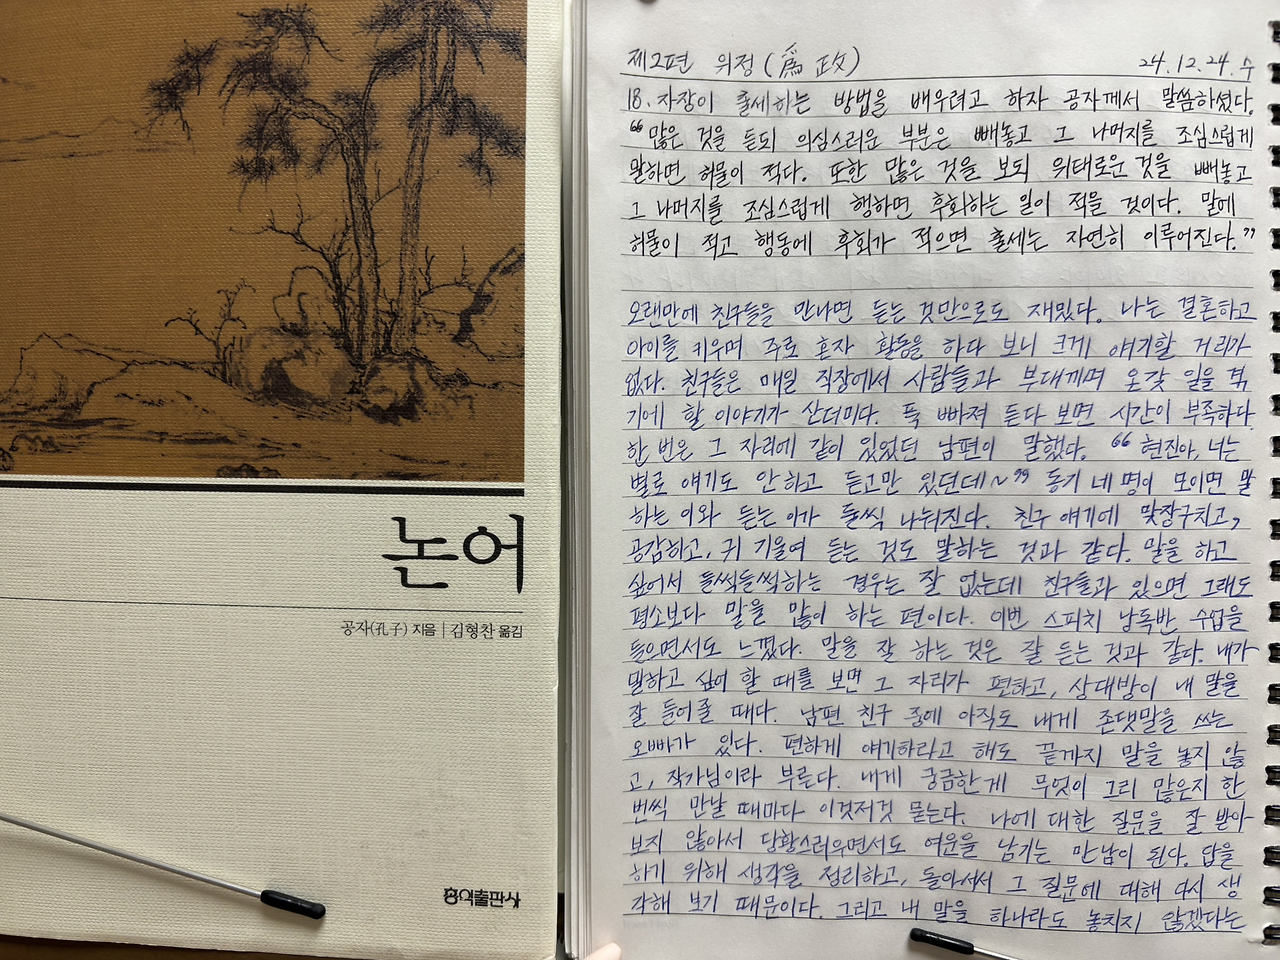 논어
공자(孔子) 지음 | 김형찬 옮김
홍익출판사
제2편 위정(爲政) 24.12.24.수
18. 자장이 출세하는 방법을 배우려고 하자 공자께서 말씀하셨다.
“많은 것을 듣되 의심스러운 부분은 빼놓고 그 나머지를 조심스럽게
말하면 허물이 적다. 또한 많은 것을 보되 위태로운 것을 빼놓고
그 나머지를 조심스럽게 행하면 후회하는 일이 적을 것이다. 말에
허물이 적고 행동에 후회가 적으면 출세는 자연히 이루어진다.”
오랜만에 친구들을 만나면 듣는 것만으로도 재밌다. 나는 결혼하고
아이를 키우며 주로 혼자 활동을 하다 보니 크게 얘기할 거리가
없다. 친구들은 매일 직장에서 사람들과 부대끼며 온갖 일을 겪
기에 할 이야기가 산더미다. 푹 빠져 듣다 보면 시간이 부족하다.
한 번은 그 자리에 같이 있었던 남편이 말했다. “현진아, 너는
별로 얘기도 안하고 듣고만 있던데~” 동기 네 명이 모이면 말
하는 이와 듣는 이가 둘씩 나눠진다. 친구 얘기에 맞장구치고,
공감하고, 귀 기울여 듣는 것도 말하는 것과 같다. 말을 하고
싶어서 들썩들썩하는 경우는 잘 없는데 친구들과 있으면 그래도
평소보다 말을 많이 하는 편이다. 이번 스피치 낭독반 수업을
들으면서도 느꼈다. 말을 잘 하는 것은 잘 듣는 것과 같다. 내가
말하고 싶어 할 때를 보면 그 자리가 편하고, 상대방이 내 말을
잘 들어줄 때다. 남편 친구 중에 아직도 내게 존댓말을 쓰는
오빠가 있다. 편하게 얘기하라고 해도 끝까지 말을 놓지 않
고, 작가님이라 부른다. 내게 궁금한 게 무엇이 그리 많은지 한
번씩 만날 때마다 이것저것 묻는다. 나에 대한 질문을 잘 받아
보지 않아서 당황스러우면서도 여운을 남기는 만남이 된다. 답을
하기 위해 생각을 정리하고, 돌아서서 그 질문에 대해 다시 생
각해 보기 때문이다. 그리고 내 말을 하나라도 놓치지 않겠다는